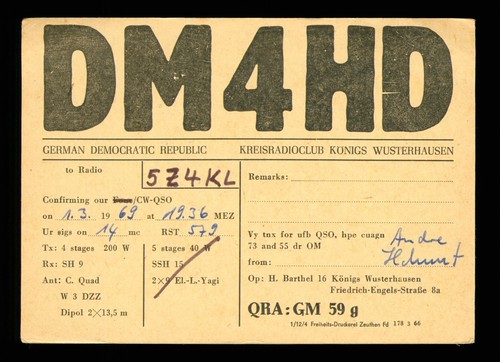 DM4HD
GERMAN DEMOCRATIC REPUBLIC KREISRADIOCLUB KÖNIGS WUSTERHAUSEN
to Radio 5Z4KL
Confirming our Fone/CW-QSO
on 1.3. 1969 at 19.36 MEZ
Ur sigs on 14 mc RST 579
Tx: 4 stages 200 W 5 stages 40 W
Rx: SH 9 SSH 15
Ant: C. Quad 2×9 El.-L.-Yagi
W 3 DZZ
Dipol 2×13,5 m
Remarks:
Vy tnx for ufb QSO, hpe cuagn
73 and 55 dr OM
from: Andre
Op: H. Barthel 16 Königs Wusterhausen
Friedrich-Engels-Straße 8a
QRA: GM 59 g
1/12/4 Freiheits-Druckerei Zeuthen Fd 178 3 66